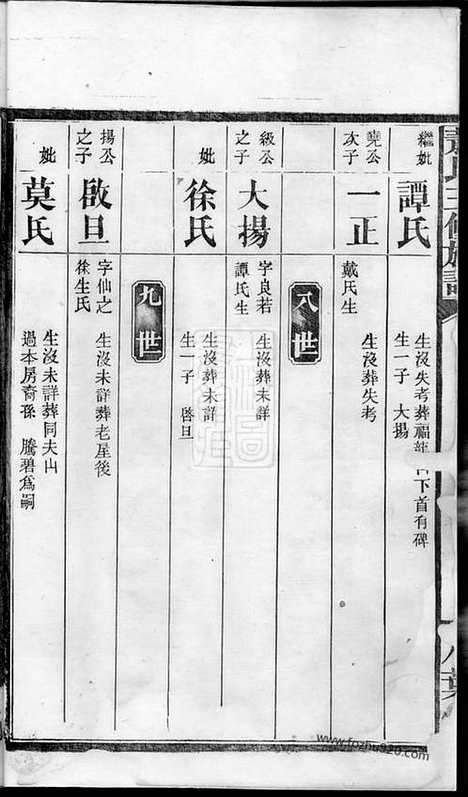 繼妣
譚氏
生沒失考葬福
下首有碑
生一子 大揚
堯公
次子
一正
戴氏生
生沒葬失考
八世
級公
之子
大揚
字良若
譚氏生
生沒葬未詳
妣
徐氏
生沒葬未詳
生一子 啓旦
九世
揚公
之子
啟旦
字仙之
徐生氏
生沒未詳葬老星後
妣
莫氏
生沒未詳葬同夫山
過本房裔孫 騰碧爲嗣
氏三修族譜
八葉
www.fozhu920.com